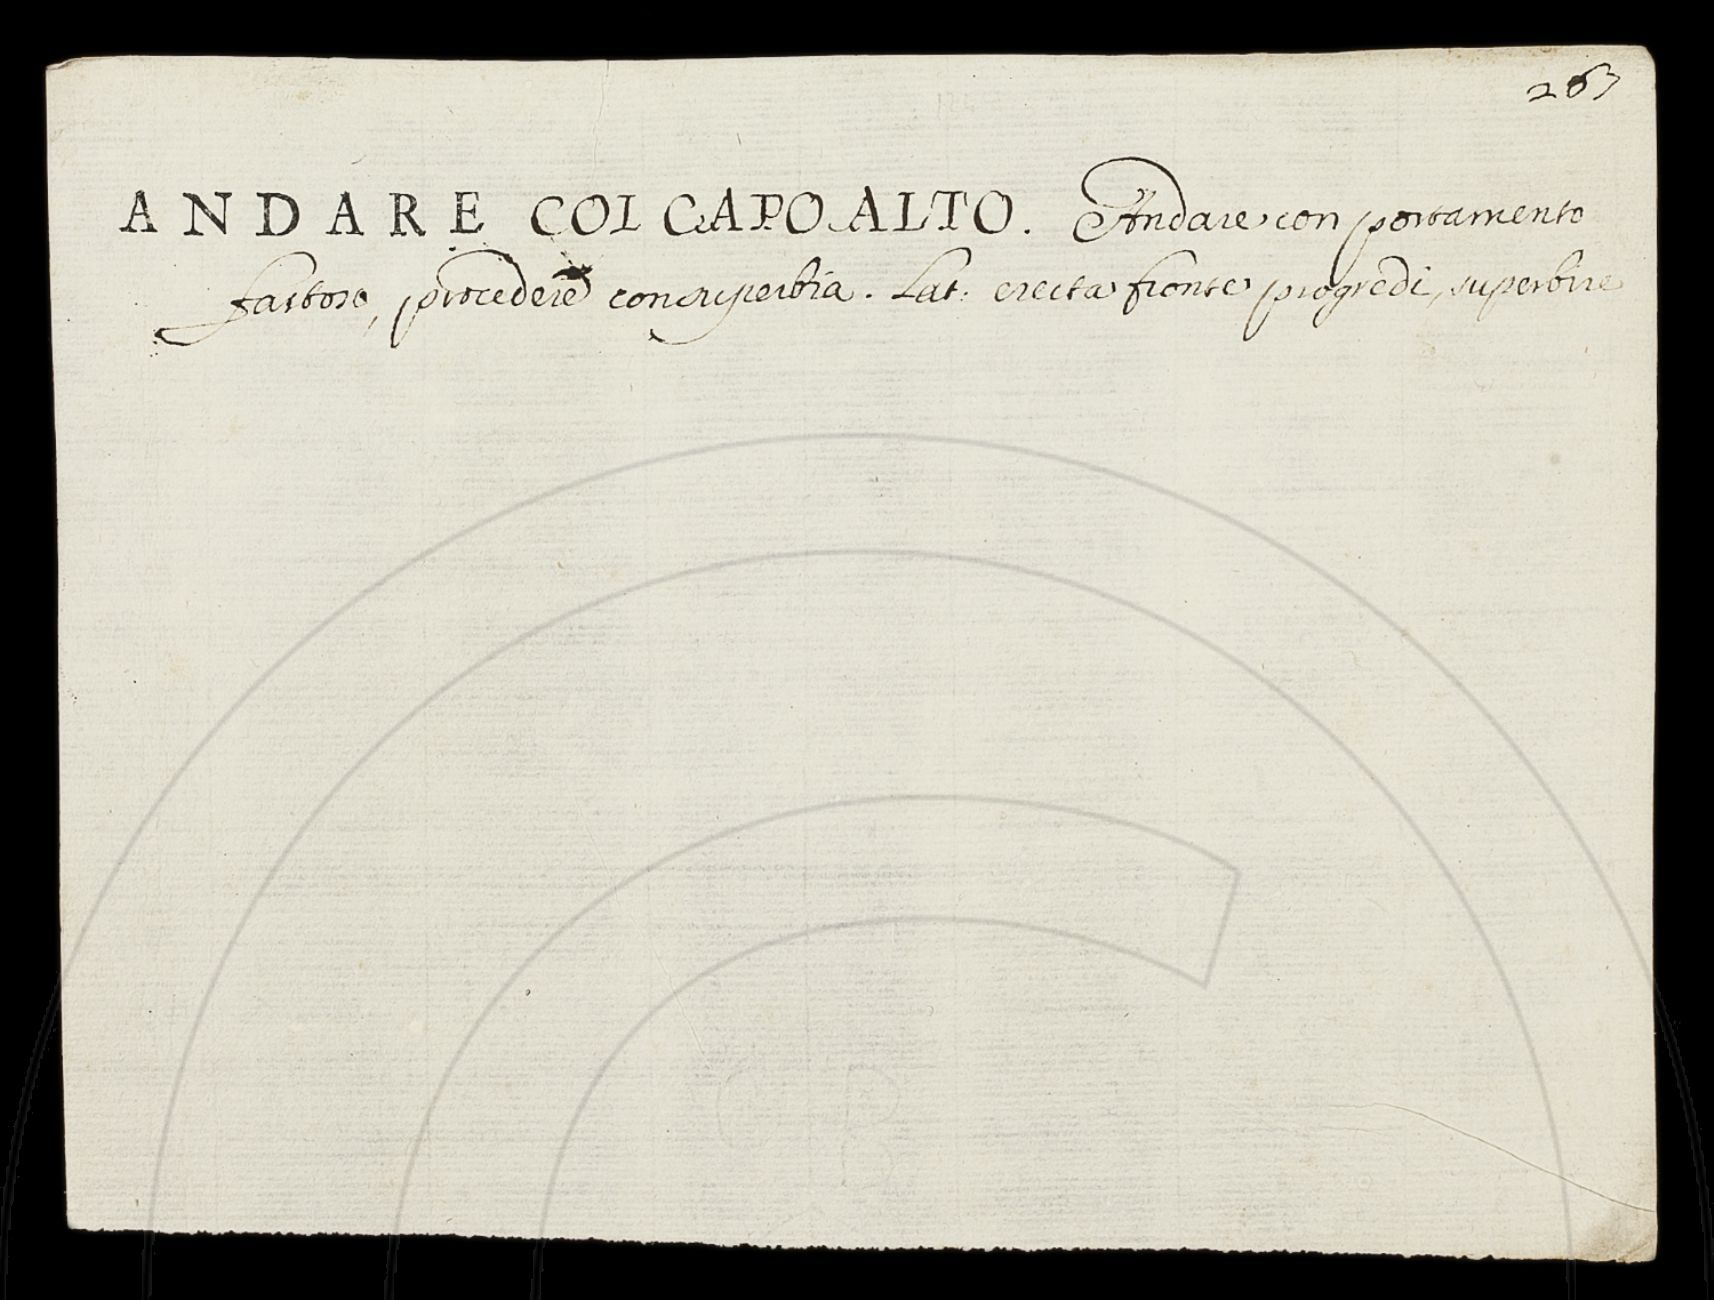 263
ANDARE COL CAPO ALTO. Andare con portamento
fastoso, procedere con superbia. Lat: erecta fronte progredi, superbire